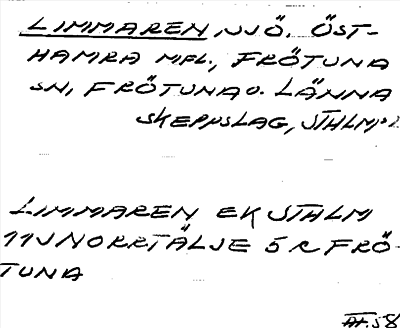 LIMMAREN, SJÖ. ÖST-
HAMRA MFL., FRÖTUNA
SN, FRÖTUNA O. LÄNNA
SKEPPSLAG, STHLMS L
LIMMAREN EK STHLM
11J NORRTÄLJE 5 C FRÖ-
TUNA
58